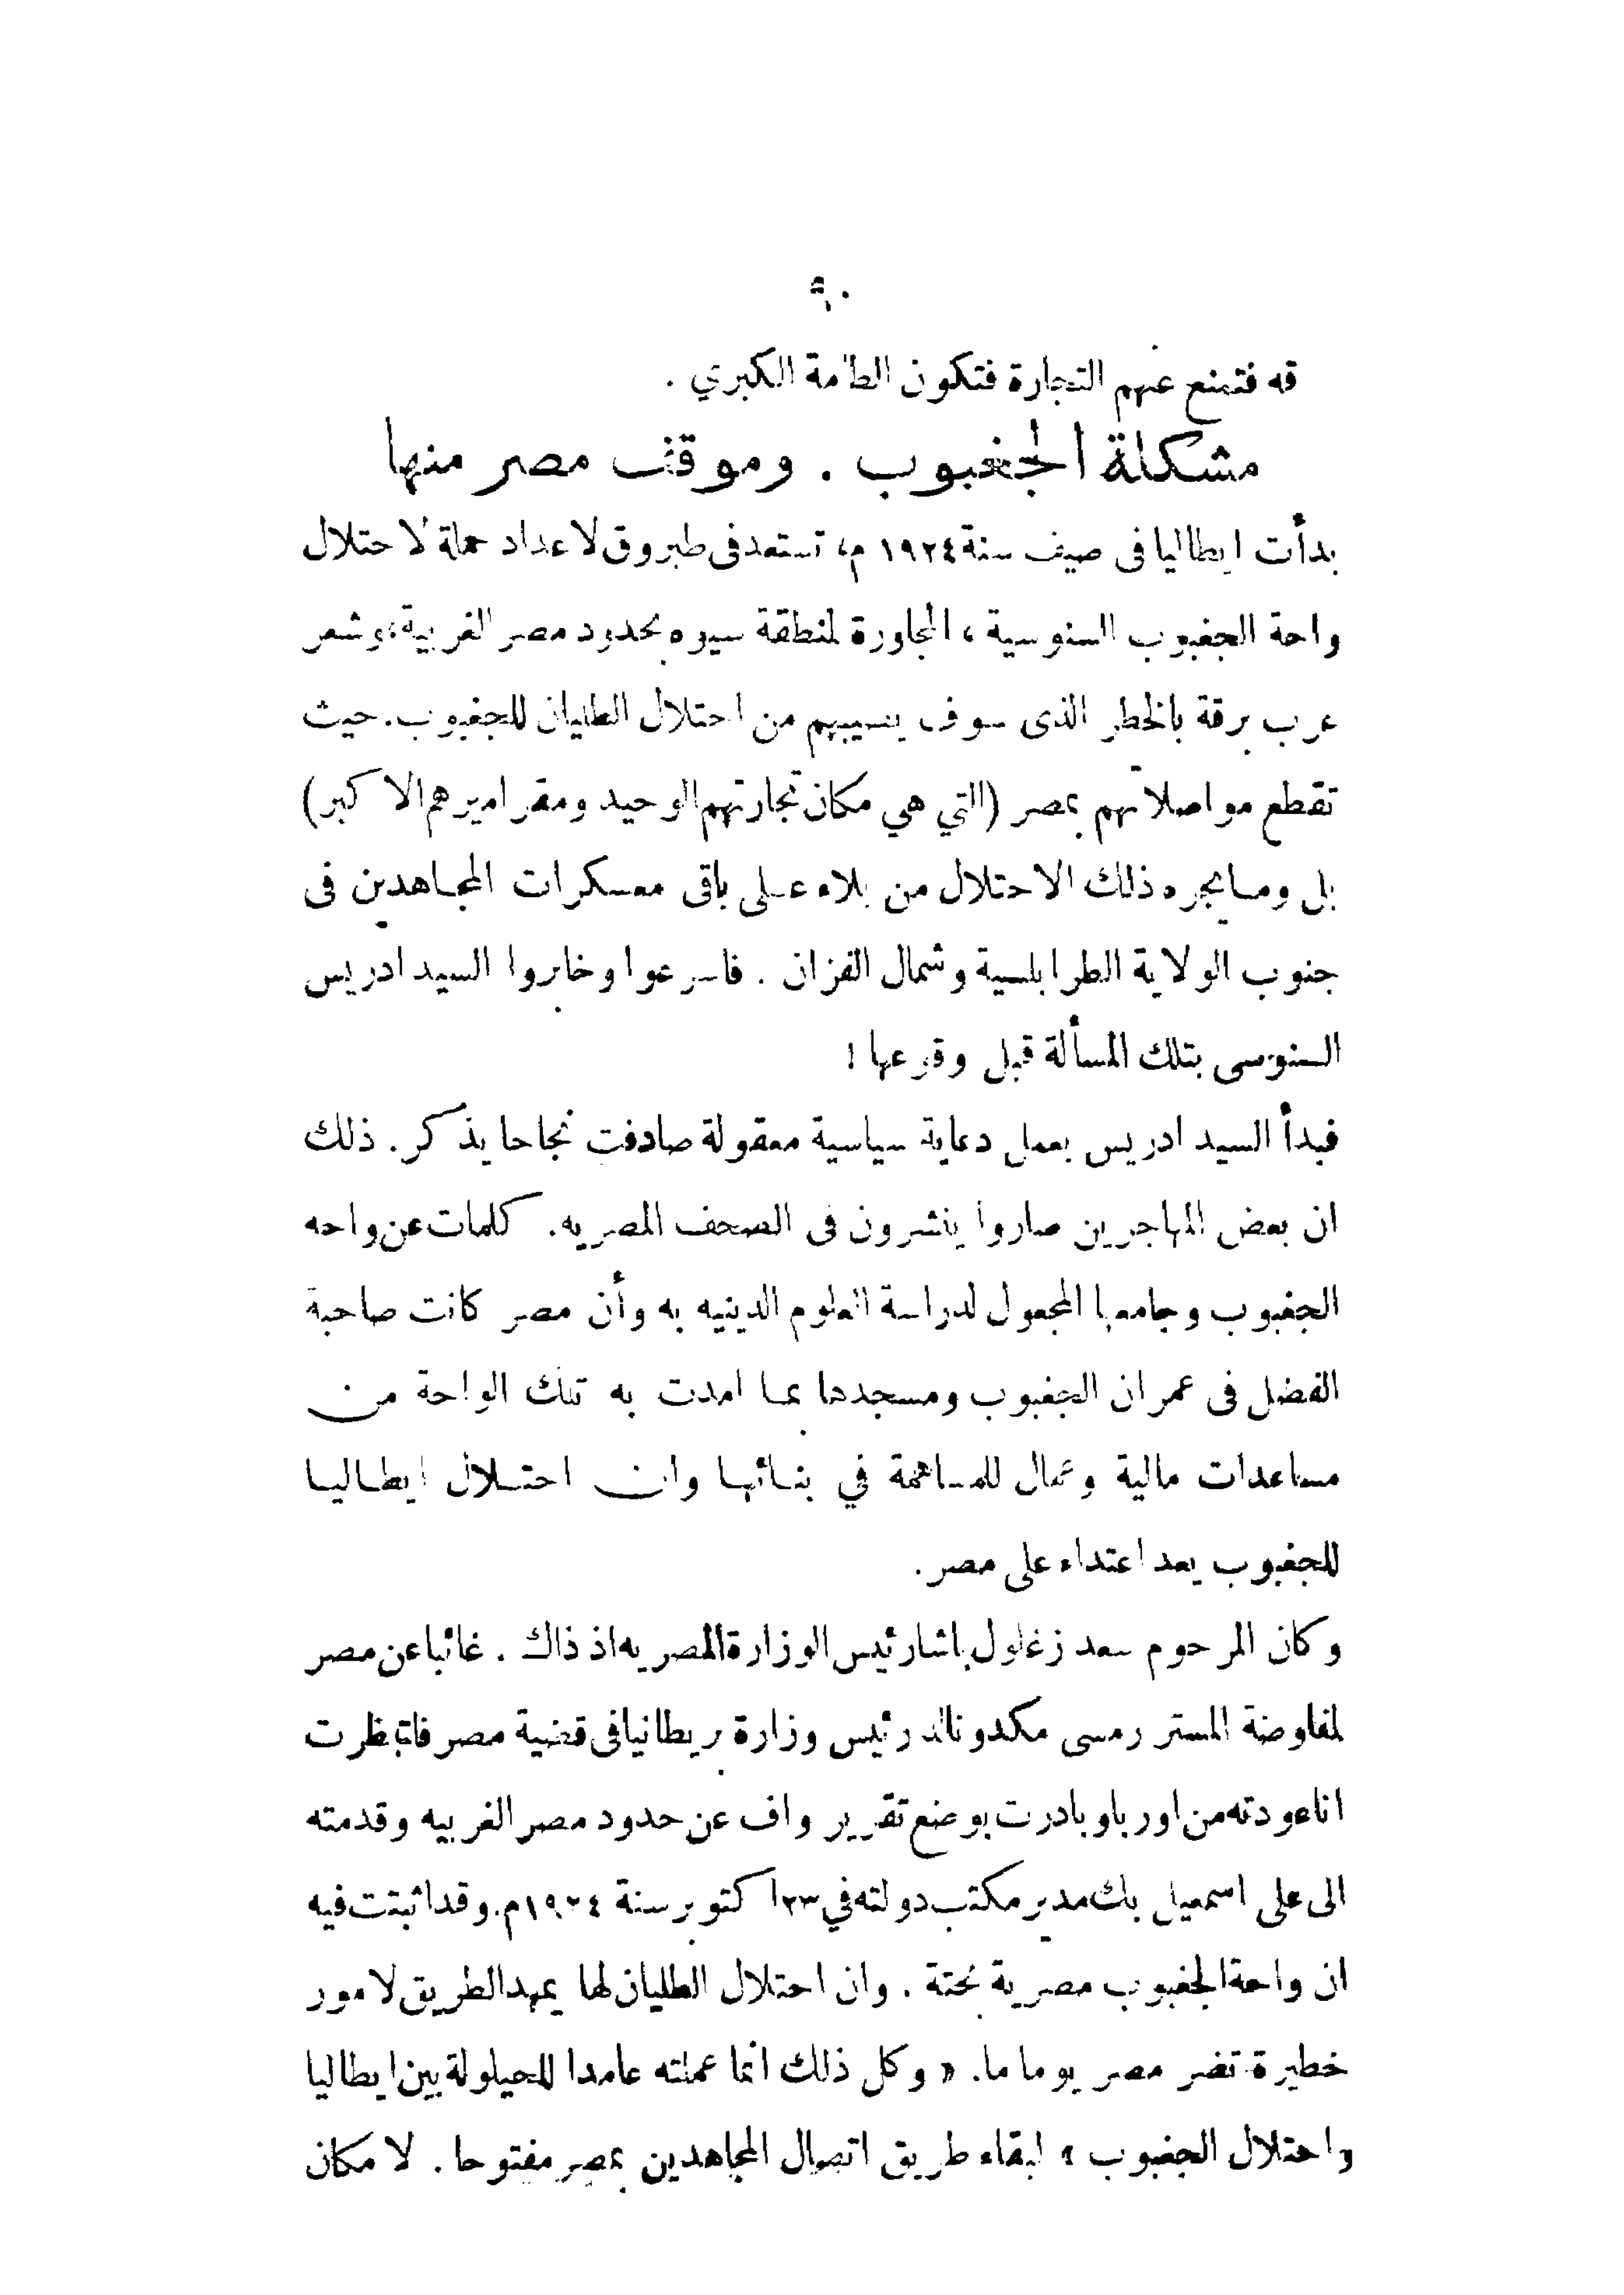 قه فتمنع عنهم التجارة فتكون الطامة الكبري .
مشكلة الجغبوب . وموقف مصر منها
بدأت ايطاليا فى صيف سنة ١٩٢٤ م، تستعد فى طبروق لاعداد حملة لاحتلال
واحة الجغبوب السنوسية ، المجاورة لمنطقة سيوه بحدود مصر الغربية، وشعر
عرب برقة بالخطر الذى سوف يصيبهم من احتلال الطليان للجغبوب. حيث
تقطع مواصلاتهم بمصر (التي هي مكان تجارتهم الوحيد ومقر اميرهم الاكبر)
بل وما يجره ذلك الاحتلال من بلاء على باقى معسكرات المجاهدين فى
جنوب الولاية الطرابلسية وشمال الفزان . فاسرعوا وخابروا السيد ادريس
السنوسى بتلك المسألة قبل وقوعها !
فبدأ السيد ادريس بعمل دعاية سياسية معقولة صادفت نجاحا يذكر. ذلك
ان بعض المهاجرين صاروا ينشرون فى الصحف المصريه. كلمات عن واحه
الجغبوب وجامعها المجعول لدراسة العلوم الدينيه به وأن مصر كانت صاحبة
الفضل فى عمران الجغبوب ومسجدها بما امدت به تلك الواحة من
مساعدات مالية وعمال للمساهمة في بنائها وان احتلال ايطاليا
للجغبوب يعد اعتداء على مصر.
وكان المرحوم سعد زغلول باشا رئيس الوزارة المصريه اذ ذاك . غائبا عن مصر
لمفاوضة المستر رمسى مكدونالد رئيس وزارة بريطانيا فى قضية مصر فانتظرت
انا عودته من اوربا وبادرت بوضع تقرير واف عن حدود مصر الغربيه وقدمته
الى على اسمعيل بك مدير مكتب دولته في ٢٣ اكتوبر سنة ١٩٢٤م. وقد اثبتت فيه
ان واحة الجغبوب مصرية بحتة . وان احتلال الطليان لها يمهد الطريق لامور
خطيرة تضر مصر يوما ما. « وكل ذلك انما عملته عامدا للحيلولة بين ايطاليا
واحتلال الجغبوب » ابقاء طريق اتصال المجاهدين بمصر مفتوحا . لا مكان